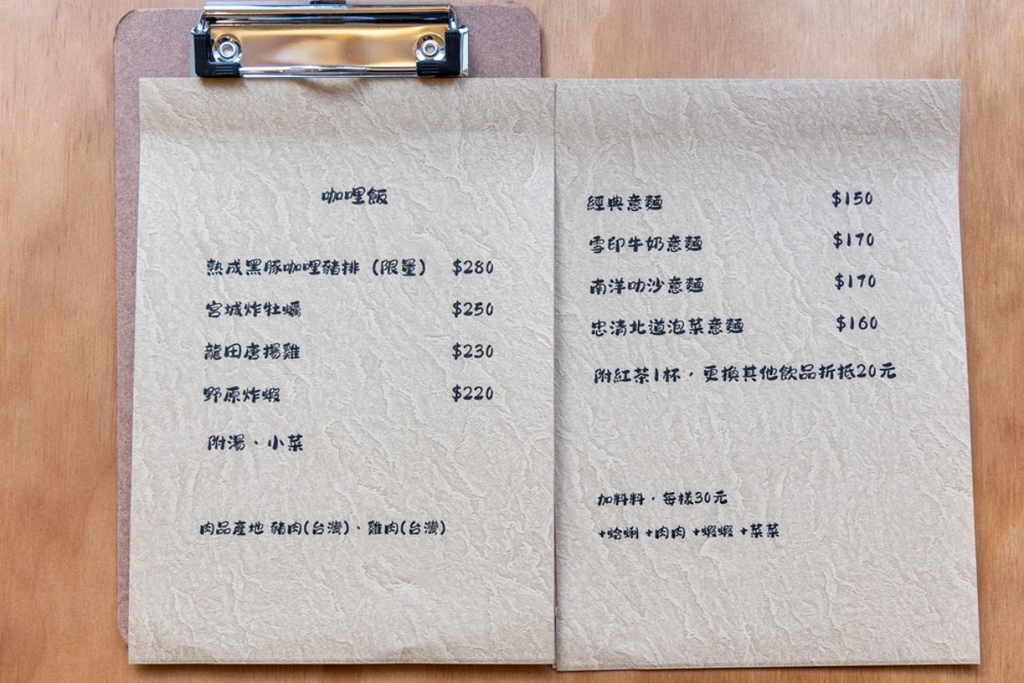 咖哩飯
熟成黑豚咖哩豬排（限量） $280
宮城炸牡蠣 $250
龍田唐揚雞 $230
野原炸蝦 $220
附湯、小菜
肉品產地 豬肉(台灣)、雞肉(台灣)
經典意麵 $150
雪印牛奶意麵 $170
南洋叻沙意麵 $170
忠清北道泡菜意麵 $160
附紅茶1杯，更換其他飲品折抵20元
加料料，每樣30元
+蛤蜊 +肉肉 +蝦蝦 +菜菜